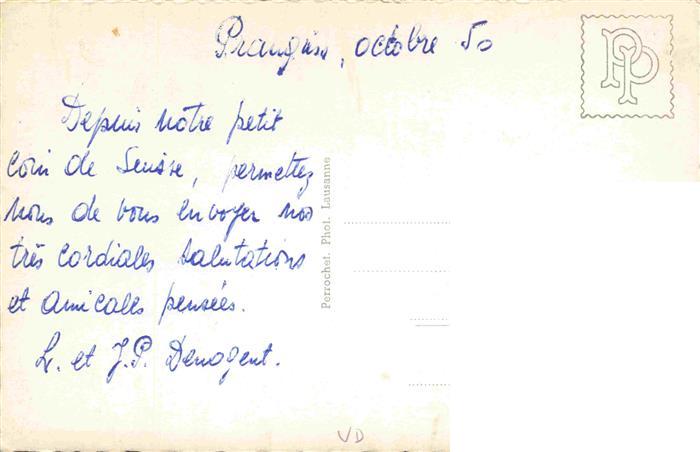 Prangins, octobre 50
Depuis notre petit
coin de Suisse, permettez
nous de vous envoyer nos
très cordiales salutations
et amicales pensées.
L. et J.P. Denogent.
Perrochet. Phot. Lausanne
PP
VD